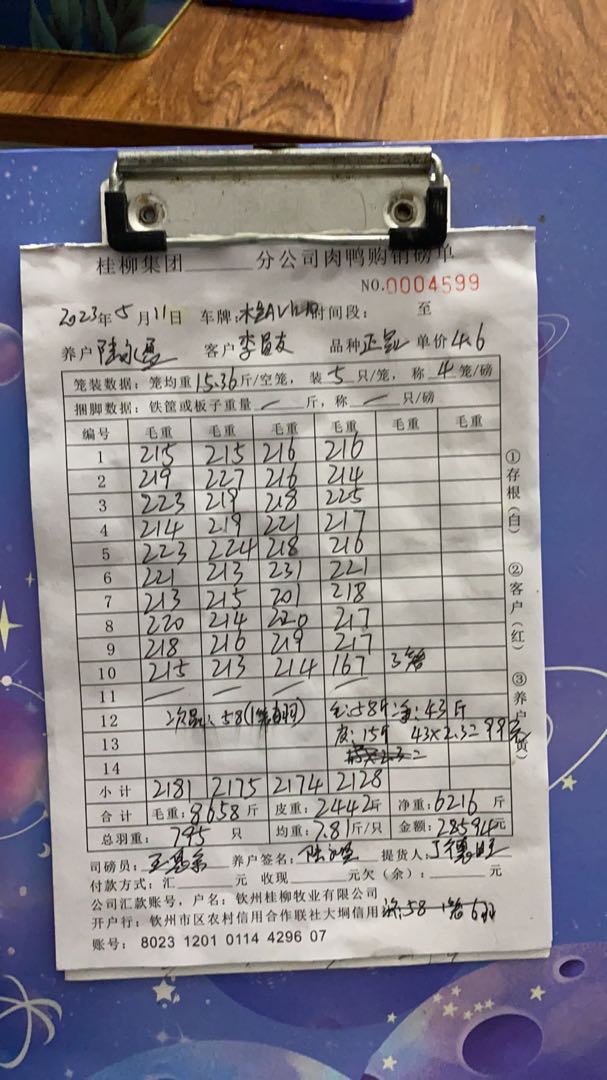 桂柳集团______分公司肉鸭购销磅单
NO.0004599
2023年5月11日 车牌: 时间段: 至
养户 陆 客户 李 友 品种 正 单价 4.6
笼装数据: 笼均重 15.36 斤/空笼, 装 5 只/笼, 称 4 笼/磅
捆脚数据: 铁筐或板子重量 — 斤, 称 — 只/磅
编号 毛重 毛重 毛重 毛重 毛重 毛重
1 215 215 216 216
2 219 227 216 214
3 223 219 218 225
4 214 219 221 217
5 223 224 218 216
6 221 213 231 221
7 213 215 201 218
8 220 214 220 217
9 218 216 219 217
10 215 213 214 167 3笼
11 — — — —
12 次品: 58 (1笼 羽) 毛:58斤 净:43斤
13 皮:15斤 43×2.3=99元
14
小计 2181 2175 2174 2128
合计 毛重: 8658 斤 皮重: 2442 斤 净重: 6216 斤
总羽重: 795 只 均重: 7.81 斤/只 金额: 28594 元
司磅员: 养户签名: 陆 提货人: 丁德
付款方式: 汇______元 收现______元欠(余):______元
公司汇款账号, 户名: 钦州桂柳牧业有限公司
开户行: 钦州市区农村信用合作联社大垌信用 58 1笼6羽
账号: 8023 1201 0114 4296 07
①存根(白) ②客户(红) ③养户(黄)